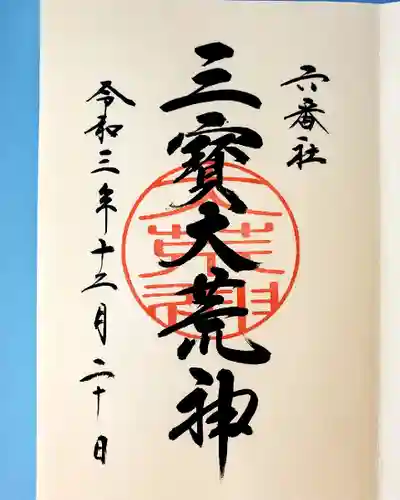 六番社
三寳大荒神
令和三年十二月二十日